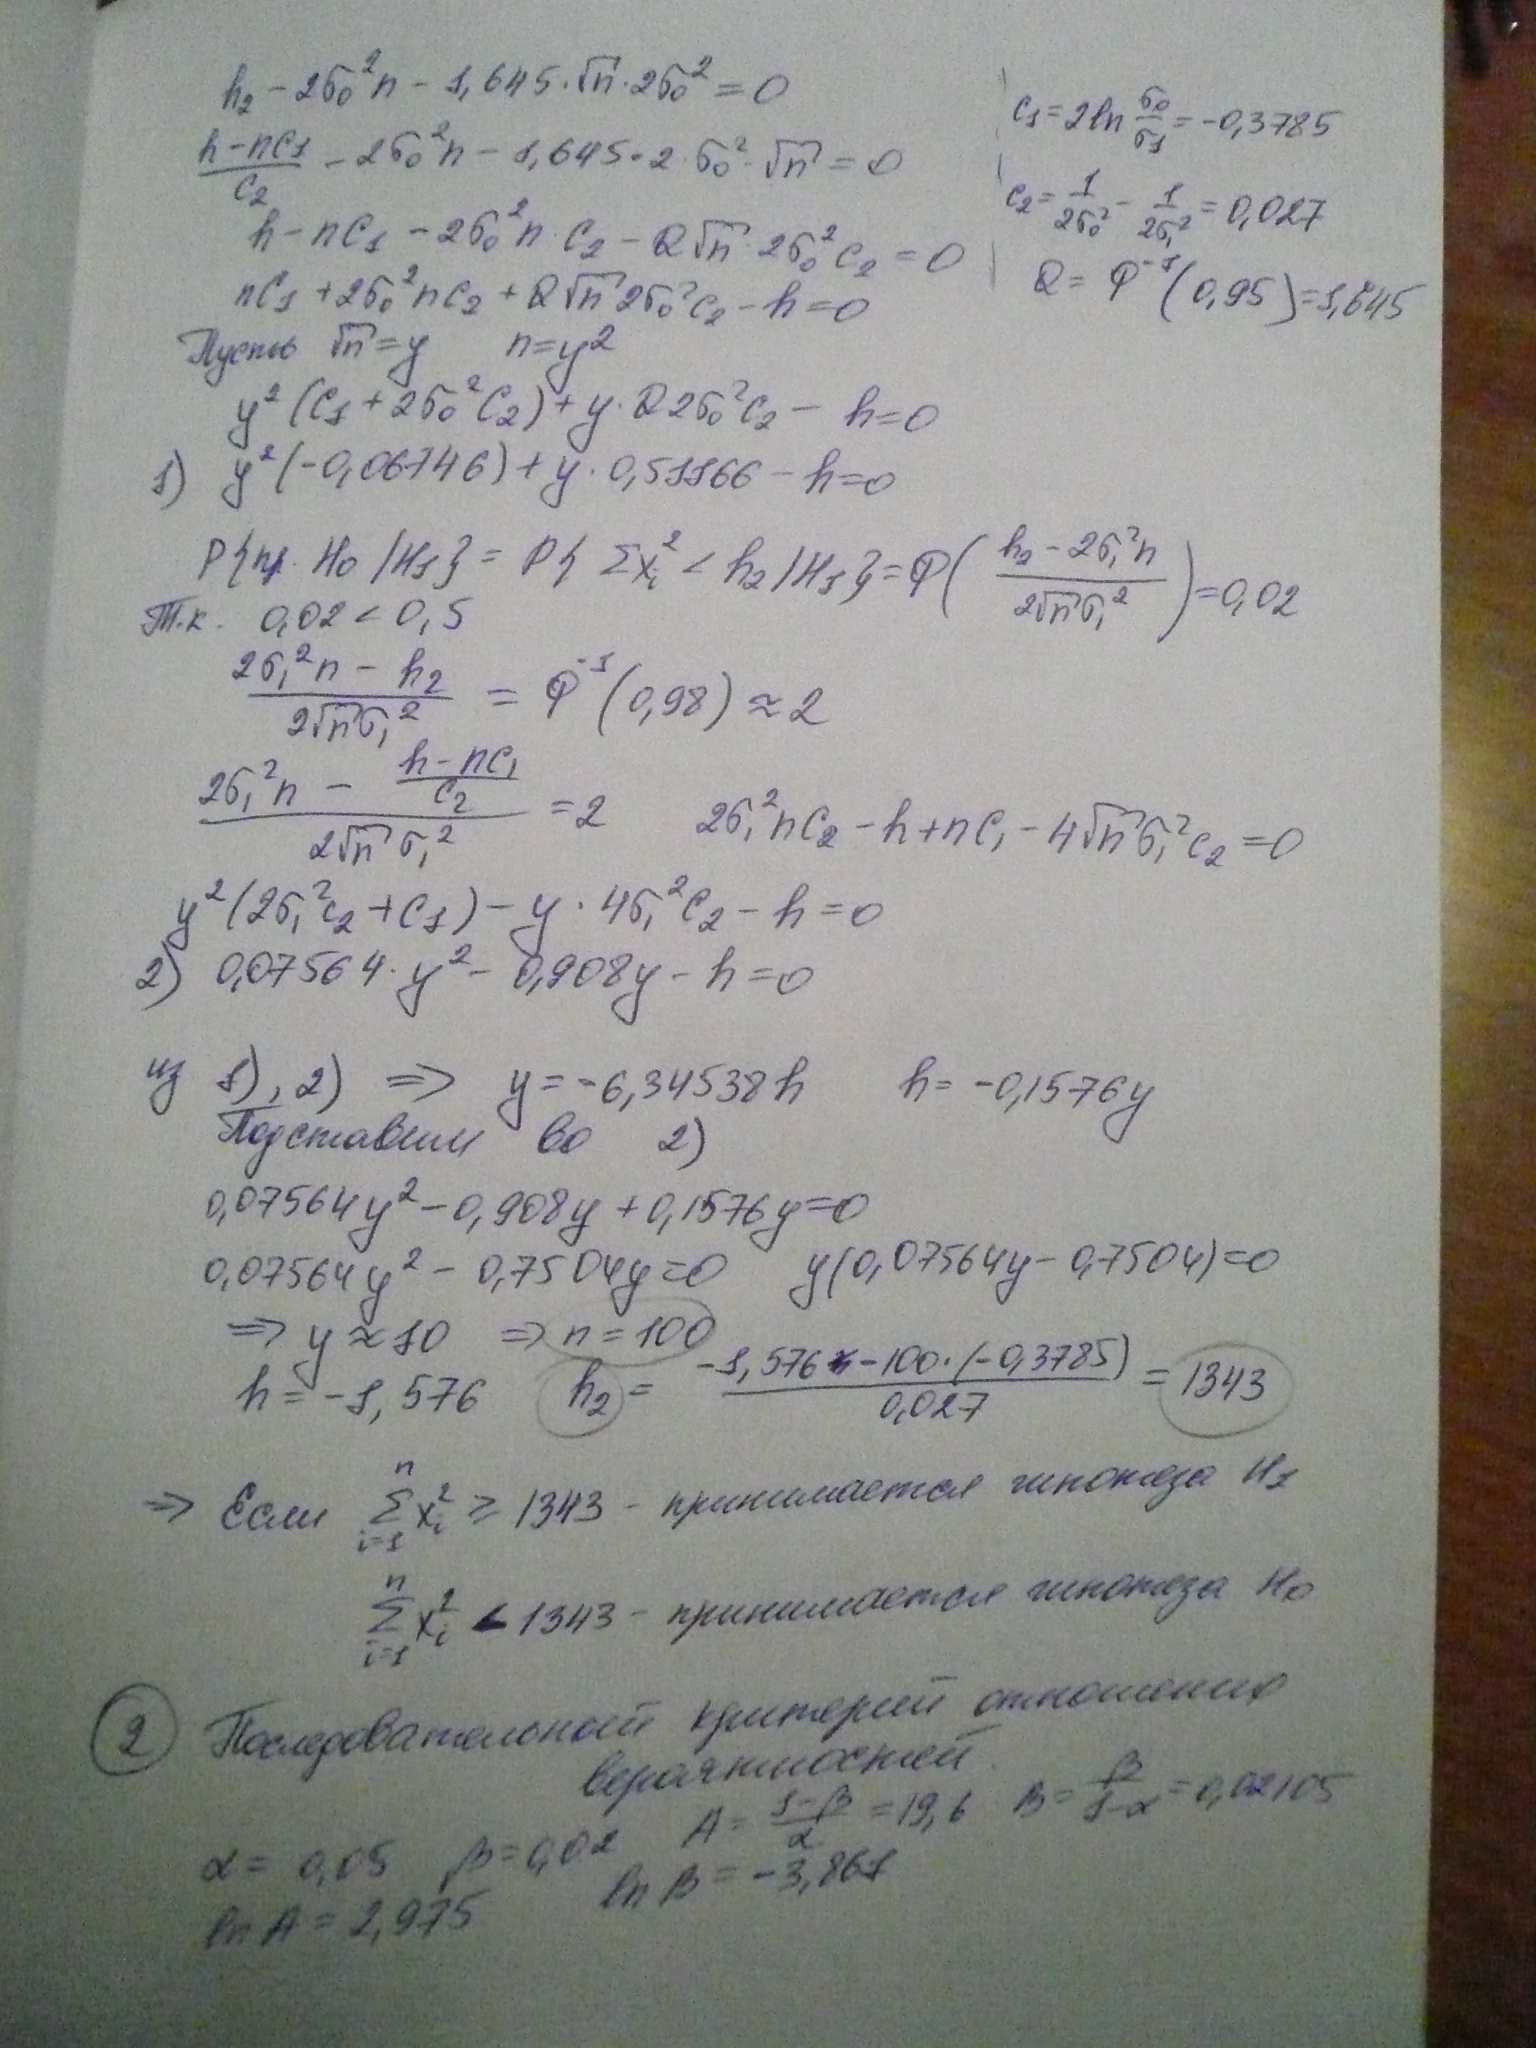 h₂ − 2σ₀²n − 1,645·√n·2σ₀² = 0
(h − nC₁)/C₂ − 2σ₀²n − 1,645·2·σ₀²·√n = 0
h − nC₁ − 2σ₀²n·C₂ − Q√n·2σ₀²C₂ = 0
nC₁ + 2σ₀²nC₂ + Q√n 2σ₀²C₂ − h = 0
C₁ = 2ln σ₀/σ₁ = −0,3785
C₂ = 1/(2σ₀²) − 1/(2σ₁²) = 0,027
Q = Φ⁻¹(0,95) = 1,645
Пусть √n = y n = y²
y²(C₁ + 2σ₀²C₂) + y·Q2σ₀²C₂ − h = 0
1) y²(−0,06746) + y·0,51166 − h = 0
P{пр. H₀ / H₁} = P{Σxᵢ² < h₂ / H₁} = Φ((h₂ − 2σ₁²n)/(2√n σ₁²)) = 0,02
Т.к. 0,02 < 0,5
(2σ₁²n − h₂)/(2√n σ₁²) = Φ⁻¹(0,98) ≈ 2
(2σ₁²n − (h − nC₁)/C₂)/(2√n σ₁²) = 2 2σ₁²nC₂ − h + nC₁ − 4√n σ₁²C₂ = 0
y²(2σ₁²C₂ + C₁) − y·4σ₁²C₂ − h = 0
2) 0,07564·y² − 0,908y − h = 0
из 1), 2) ⇒ y = −6,34538h h = −0,1576y
Подставим во 2)
0,07564y² − 0,908y + 0,1576y = 0
0,07564y² − 0,7504y = 0 y(0,07564y − 0,7504) = 0
⇒ y ≈ 10 ⇒ n = 100
h = −1,576 h₂ = (−1,576 − 100·(−0,3785))/0,027 = 1343
⇒ Если Σⁿᵢ₌₁ xᵢ² ≥ 1343 − принимается гипотеза H₁
Σⁿᵢ₌₁ xᵢ² < 1343 − принимается гипотеза H₀
2 Последовательный критерий отношения
вероятностей.
α = 0,05 β = 0,02 A = (1−β)/α = 19,6 B = β/(1−α) = 0,02105
ln A = 2,975 ln B = −3,861